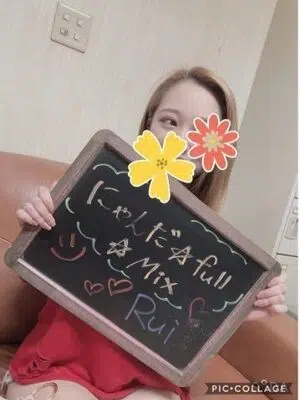 にゃんだ☆full
☆Mix
Rui
PIC•COLLAGE